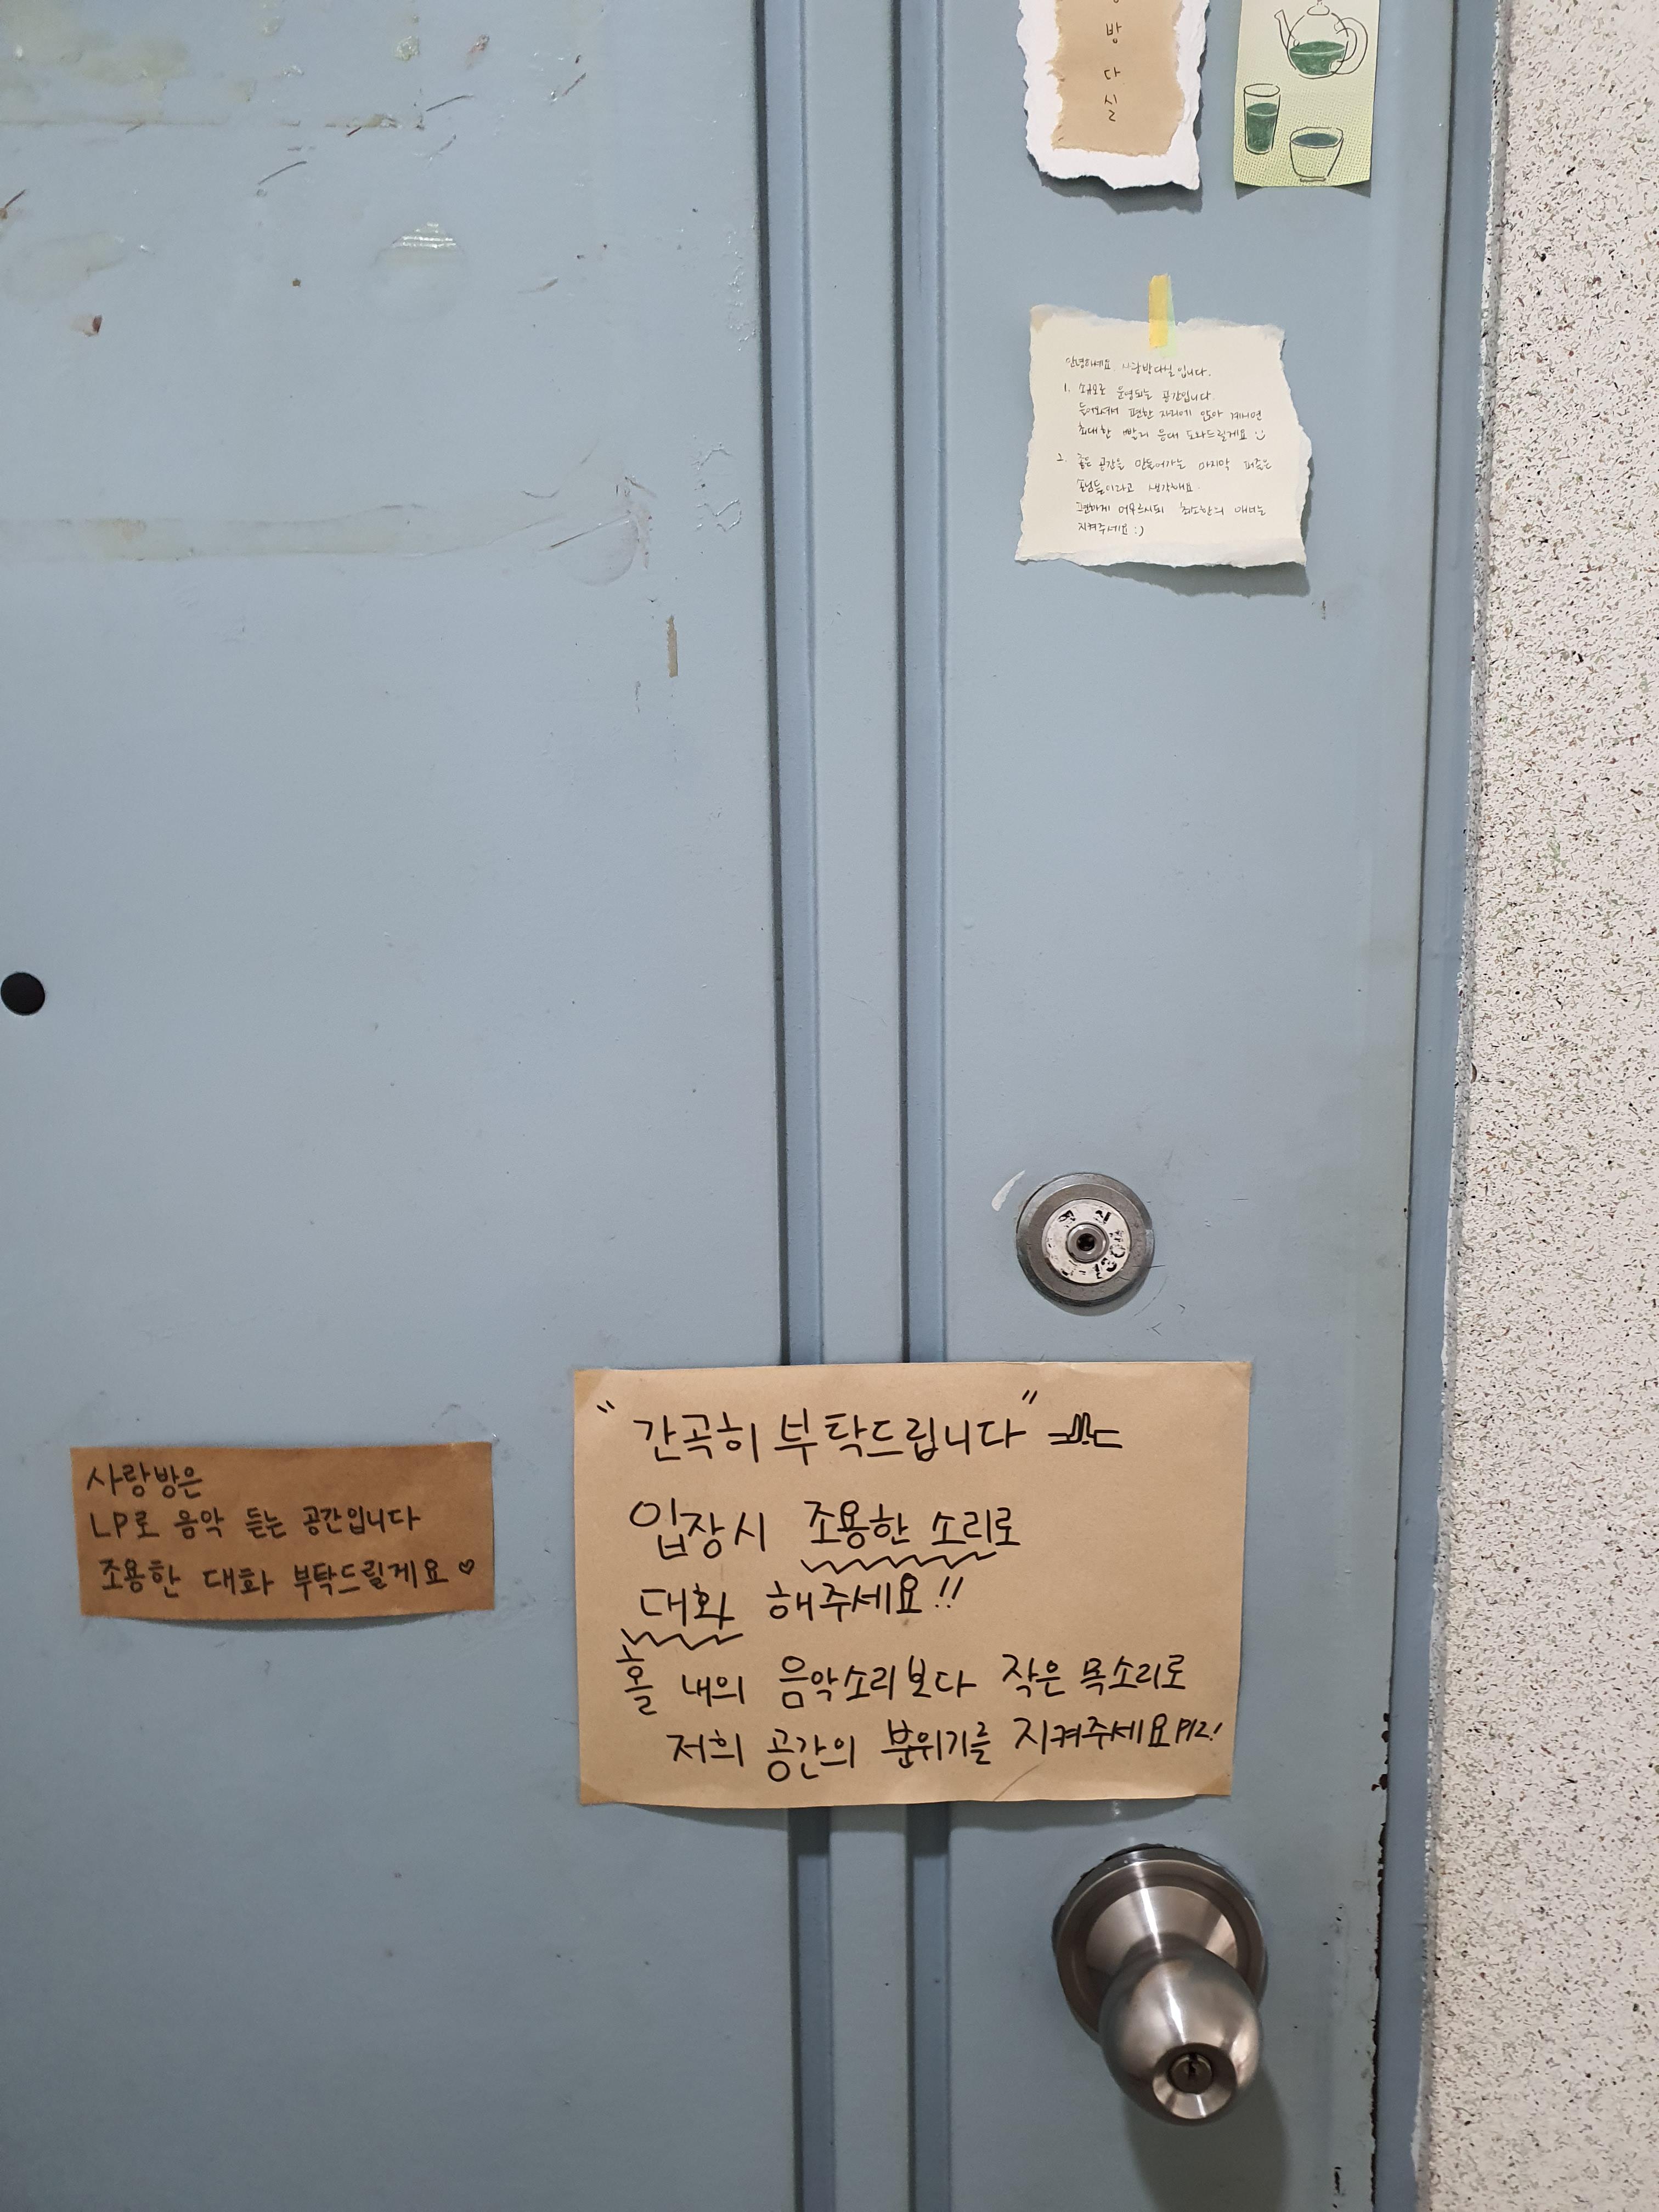 방
다
실
안녕하세요 사랑방다실입니다.
1. 소규모로 운영되는 공간입니다.
들어오셔서 편한 자리에 앉아 계시면
최대한 빨리 응대 도와드릴게요 :)
2. 좋은 공간을 만들어가는 마지막 퍼즐은
손님들이라고 생각해요.
편하게 머무르시되 최소한의 매너는
지켜주세요 :)
사랑방은
LP로 음악 듣는 공간입니다
조용한 대화 부탁드릴게요 ♡
"간곡히 부탁드립니다"
입장시 조용한 소리로
대화 해주세요!!
홀 내의 음악소리보다 작은 목소리로
저희 공간의 분위기를 지켜주세요 plz!